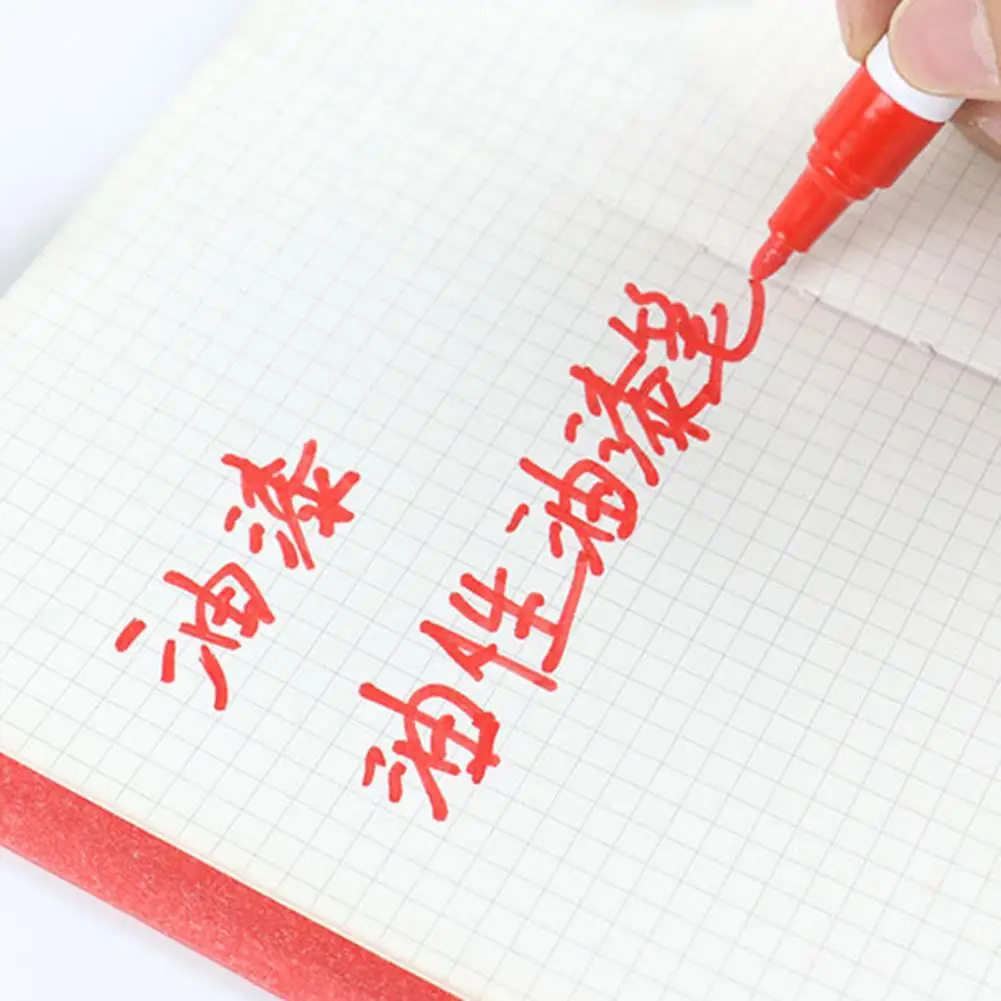 油漆
油性油漆笔